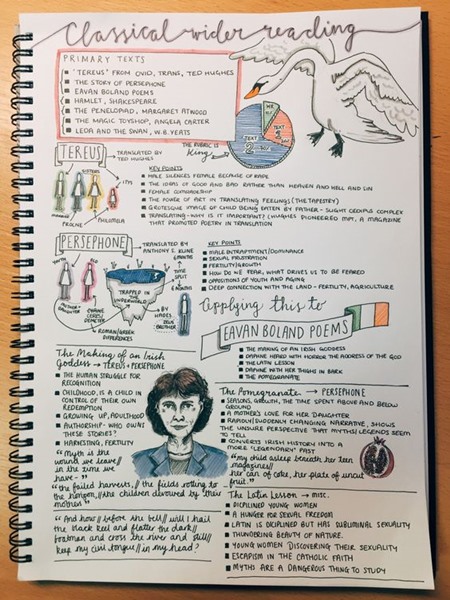 Classical wider reading
PRIMARY TEXTS
"TEREUS" FROM OVID, TRANS, TED HUGHES
THE STORY OF PERSEPHONE
EAVAN BOLAND POEMS
HAMLET, SHAKESPEARE
THE PENELOPIAD, MARGARET ATWOOD
THE MAGIC TOYSHOP, ANGELA CARTER
LEDA AND THE SWAN, W.B. YEATS
TEXT
2
TEXT
1
THE RUBRIC IS
King
TEREUS
TRANSLATED BY
TED HUGHES
SISTERS
ITYS
PROCNE
PHILIMELA
KEY POINTS
MALE SILENCES FEMALE BECAUSE OF RAPE
THE IDEAS OF GOOD AND BAD RATHER THAN HEAVEN AND HELL AND SIN
FEMALE COMRADESHIP
THE POWER OF ART IN TRANSLATING FEELINGS (THE TAPESTRY)
GROTESQUE IMAGE OF CHILD BEING EATEN BY FATHER - SLIGHT OEDIPUS COMPLEX
TRANSLATING - WHY IS IT IMPORTANT? (HUGHES PIONEERED MPT, A MAGAZINE
THAT PROMOTED POETRY IN TRANSLATION
PERSEPHONE
TRANSLATED BY
ANTHONY S. KLINE
6 MONTHS
TIME
SPLIT
6 MONTHS
TRAPPED IN
THE
UNDERWORLD
MOTHER +
DAUGHTER
CERES/
DEMETER
ROMAN/GREEK
DIFFERENCES
BY
HADES
BROTHER
KEY POINTS
MALE ENTRAPMENT/DOMINANCE
SEXUAL FRUSTRATION
FERTILITY/GROWTH
HOW DO WE FEAR, WHAT DRIVES US TO BE FEARED
OPPOSITIONS OF YOUTH AND AGING
DEEP CONNECTION WITH THE LAND - FERTILITY, AGRICULTURE
Applying this to
EAVAN BOLAND POEMS
THE MAKING OF AN IRISH GODDESS
DAPHNE HEARD WITH HORROR THE ADDRESS OF THE GOD
THE LATIN LESSON
DAPHNE WITH HER THIGHS IN BARK
THE POMEGRANATE
The Making of an Irish
Goddess → TEREUS + PERSEPHONE
THE HUMAN STRUGGLE FOR
RECOGNITION
CHILDHOOD, IS A CHILD IN
CONTROL OF THEIR OWN
REDEMPTION
GROWING UP, ADULTHOOD
AUTHORSHIP - WHO OWNS
THESE STORIES?
HARVESTING, FERTILITY
"Myth is the
wound we leave//
in the time we
have -"
"the failed harvests,// the fields rotting to
the horizon,//the children devoured by their
mothers"
"And how// before the bell// will I hail
the black keel and flatter the dark//
boatman and cross the river and still//
keep my civil tongue// in my head?
The Pomegranate → PERSEPHONE
SEASONS, GROWTH, THE TIME SPENT ABOVE AND BELOW
GROUND
A MOTHER'S LOVE FOR HER DAUGHTER
RAPIDLY/SUDDENLY CHANGING NARRATIVE, SHOWS
THE UNSURE PERSPECTIVE THAT MYTHS/LEGENDS SEEM
TO TELL
CONVERTS IRISH HISTORY INTO A
MORE "LEGENDARY" PAST
"my child asleep beneath her teen
magazines//
her can of coke, her plate of uncut
fruit."
The Latin Lesson → MISC.
DICIPLINED YOUNG WOMEN
A HUNGER FOR SEXUAL FREEDOM
LATIN IS DICIPLINED BUT HAS SUBLIMINAL SEXUALITY
THUNDERING BEAUTY OF NATURE.
YOUNG WOMEN DISCOVERING THEIR SEXUALITY
ESCAPISM IN THE CATHOLIC FAITH
MYTHS ARE A DANGEROUS THING TO STUDY